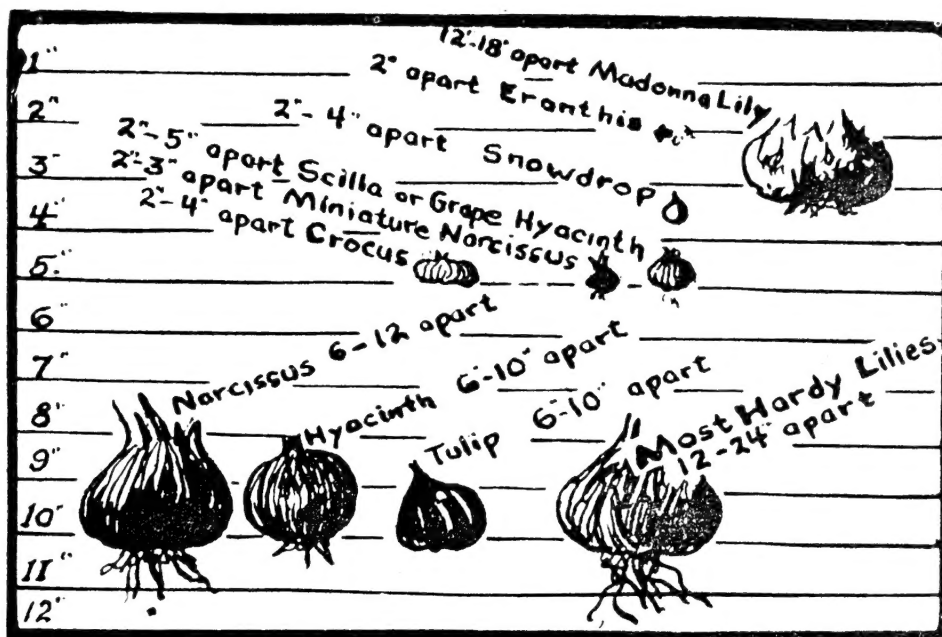 12"-18" apart Madonna Lily
1"
2" apart Eranthis
2"
2"-4" apart Snowdrop
2"-5" apart Scilla or Grape Hyacinth
3"
2"-3" apart Miniature Narcissus
2"-4" apart Crocus
4"
5"
6"
Narcissus 6-12 apart
7"
Hyacinth 6"-10" apart
8"
Tulip 6"-10" apart
Most Hardy Lilies
12-24" apart
9"
10"
11"
12"